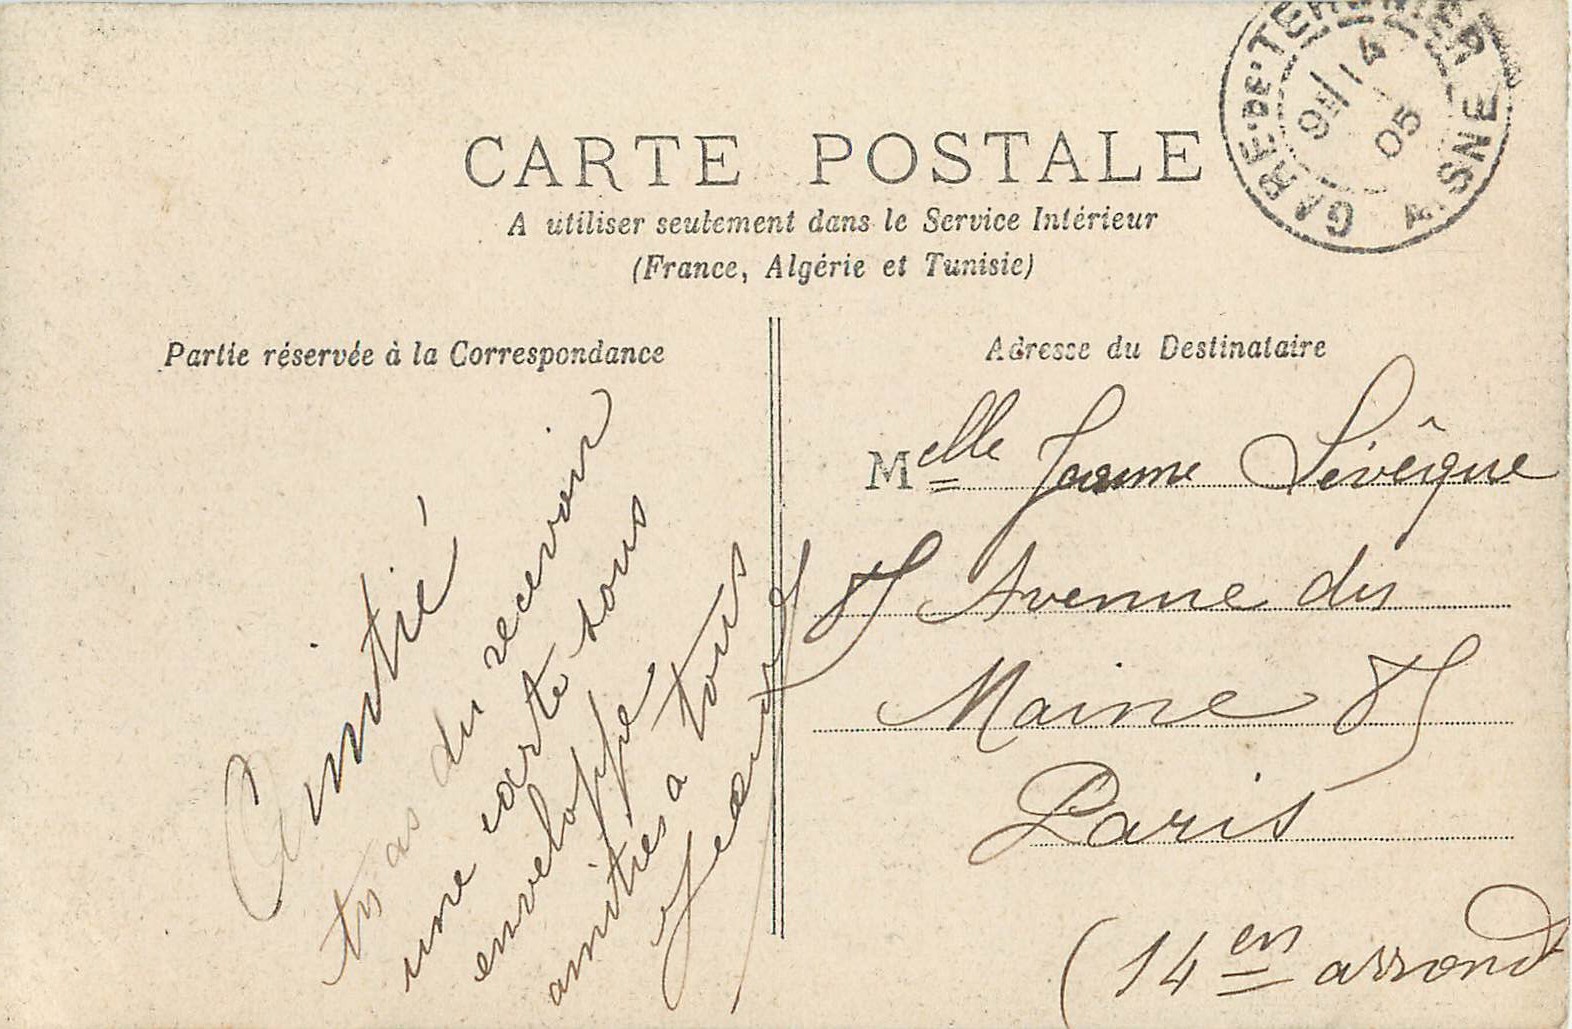 CARTE POSTALE
A utiliser seulement dans le Service Intérieur
(France, Algérie et Tunisie)
GARE-DE-TERGNIER AISNE
9E 14
05
Partie réservée à la Correspondance
Amitié
tu as du recevoir
une carte sous
enveloppe
amities a tous
Adresse du Destinataire
Melle Jeanne Lévêque
85 Avenue du
Maine 85
Paris
(14 en arrondt